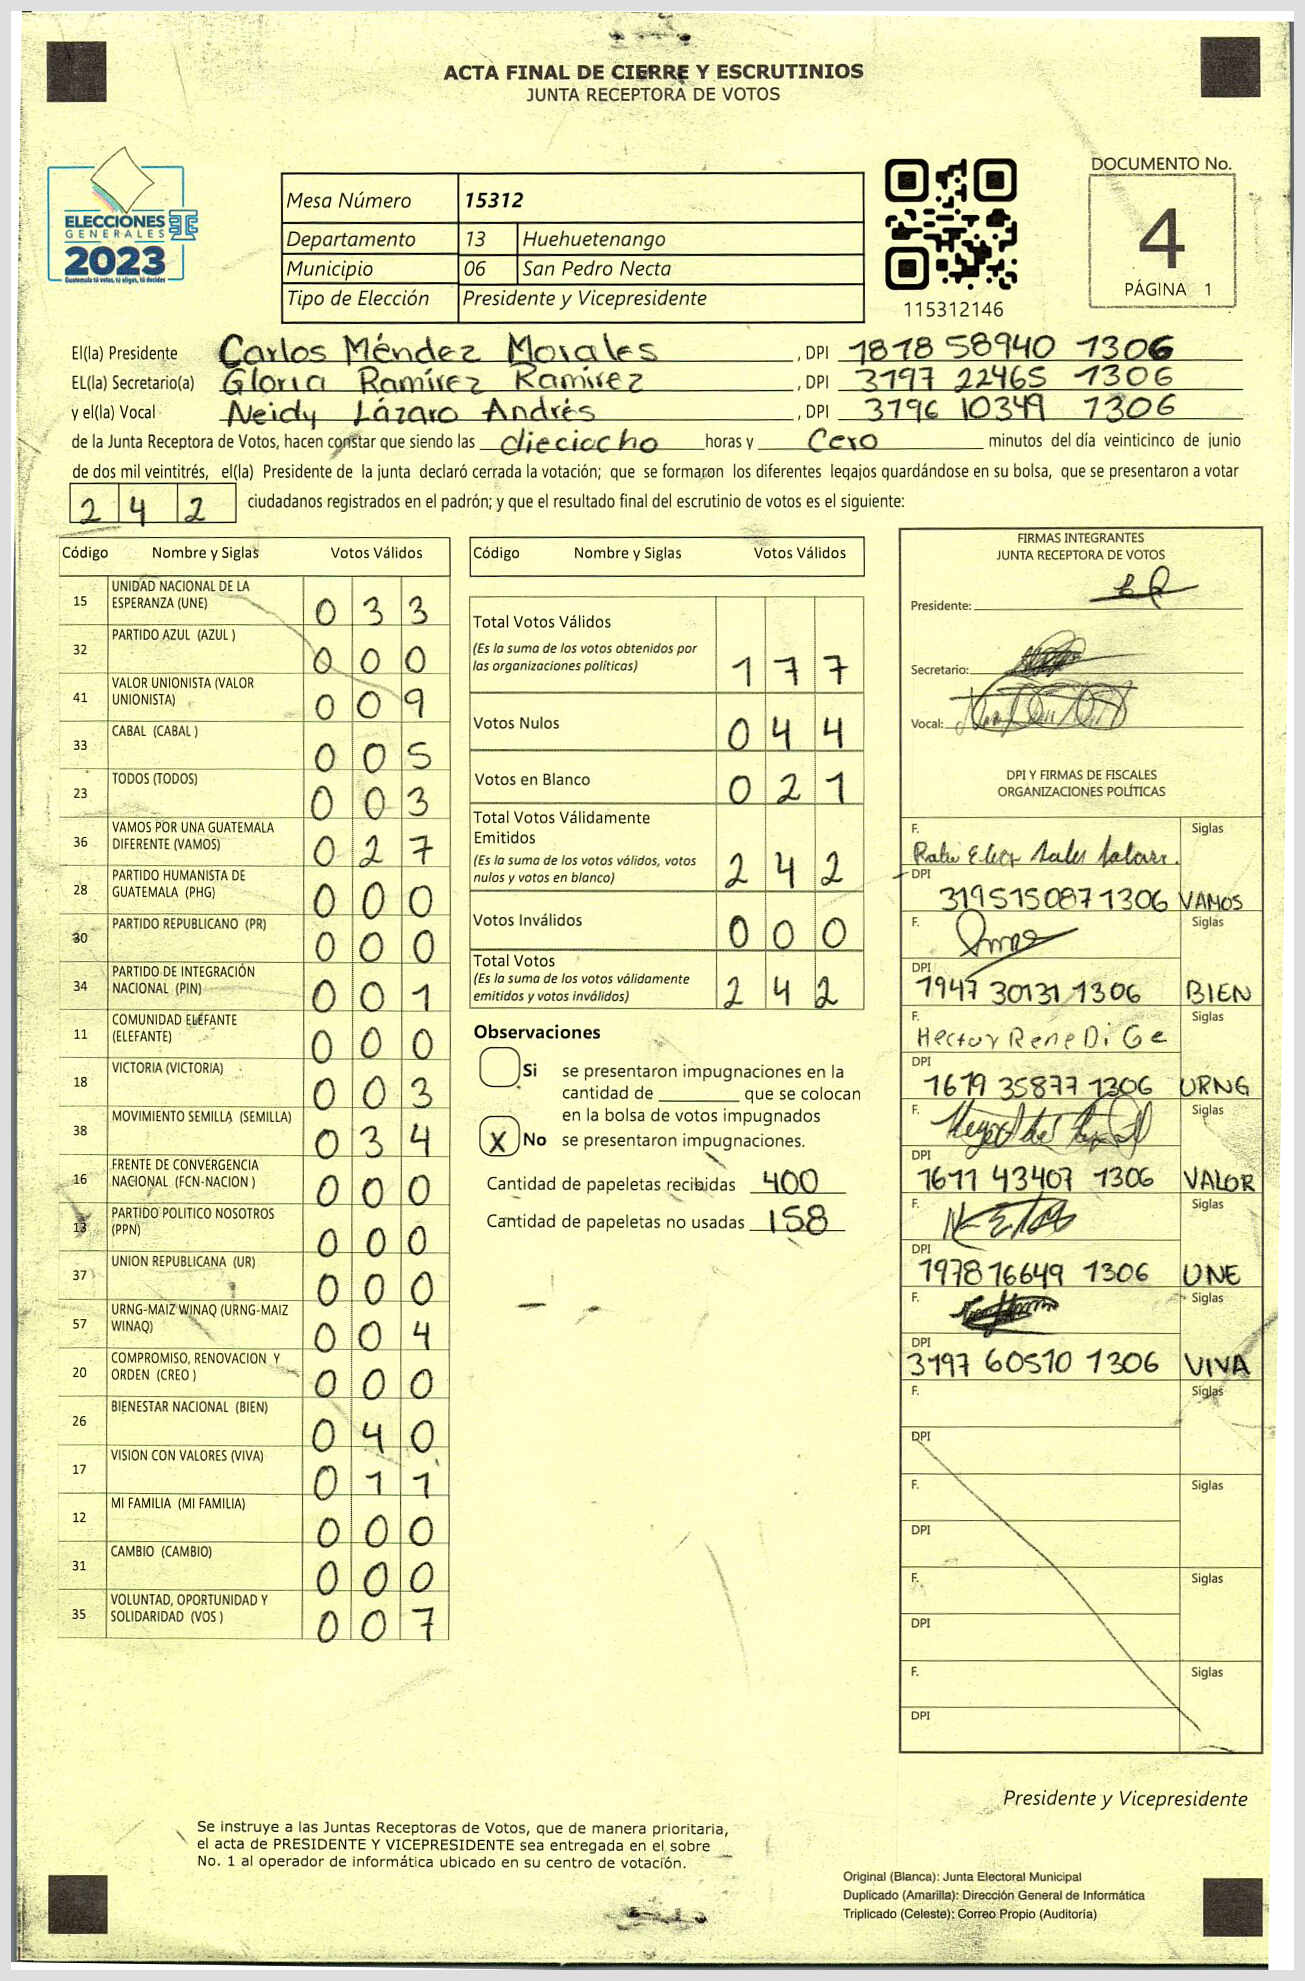 ACTA FINAL DE CIERRE Y ESCRUTINIOS
JUNTA RECEPTORA DE VOTOS
ELECCIONES
GENERALES
2023
Guatemala tú votas, tú eliges, tú decides
Mesa Número 15312
Departamento 13 Huehuetenango
Municipio 06 San Pedro Necta
Tipo de Elección Presidente y Vicepresidente
115312146
DOCUMENTO No.
4
PÁGINA 1
El(la) Presidente Carlos Méndez Morales , DPI 1818 58940 1306
EL(la) Secretario(a) Gloria Ramírez Ramírez , DPI 3197 22465 1306
y el(la) Vocal Neidy Lázaro Andrés , DPI 3196 10349 1306
de la Junta Receptora de Votos, hacen constar que siendo las dieciocho horas y Cero minutos del día veinticinco de junio
de dos mil veintitrés, el(la) Presidente de la junta declaró cerrada la votación; que se formaron los diferentes legajos guardándose en su bolsa, que se presentaron a votar
242 ciudadanos registrados en el padrón; y que el resultado final del escrutinio de votos es el siguiente:
Código Nombre y Siglas Votos Válidos
15 UNIDAD NACIONAL DE LA
ESPERANZA (UNE) 033
32 PARTIDO AZUL (AZUL ) 000
41 VALOR UNIONISTA (VALOR
UNIONISTA) 009
33 CABAL (CABAL ) 005
23 TODOS (TODOS) 003
36 VAMOS POR UNA GUATEMALA
DIFERENTE (VAMOS) 027
28 PARTIDO HUMANISTA DE
GUATEMALA (PHG) 000
30 PARTIDO REPUBLICANO (PR) 000
34 PARTIDO DE INTEGRACIÓN
NACIONAL (PIN) 001
11 COMUNIDAD ELEFANTE
(ELEFANTE) 000
18 VICTORIA (VICTORIA) 003
38 MOVIMIENTO SEMILLA (SEMILLA) 034
16 FRENTE DE CONVERGENCIA
NACIONAL (FCN-NACION ) 000
13 PARTIDO POLITICO NOSOTROS
(PPN) 000
37 UNION REPUBLICANA (UR) 000
57 URNG-MAIZ WINAQ (URNG-MAIZ
WINAQ) 004
20 COMPROMISO, RENOVACION Y
ORDEN (CREO ) 000
26 BIENESTAR NACIONAL (BIEN) 040
17 VISION CON VALORES (VIVA) 011
12 MI FAMILIA (MI FAMILIA) 000
31 CAMBIO (CAMBIO) 000
35 VOLUNTAD, OPORTUNIDAD Y
SOLIDARIDAD (VOS ) 007
Código Nombre y Siglas Votos Válidos
Total Votos Válidos
(Es la suma de los votos obtenidos por
las organizaciones políticas) 177
Votos Nulos 044
Votos en Blanco 021
Total Votos Válidamente
Emitidos
(Es la suma de los votos válidos, votos
nulos y votos en blanco) 242
Votos Inválidos 000
Total Votos
(Es la suma de los votos válidamente
emitidos y votos inválidos) 242
Observaciones
Si se presentaron impugnaciones en la
cantidad de ________ que se colocan
en la bolsa de votos impugnados
X No se presentaron impugnaciones.
Cantidad de papeletas recibidas 400
Cantidad de papeletas no usadas 158
FIRMAS INTEGRANTES
JUNTA RECEPTORA DE VOTOS
Presidente:
Secretario:
Vocal:
DPI Y FIRMAS DE FISCALES
ORGANIZACIONES POLÍTICAS
F. Siglas
DPI
319515087 1306 VAMOS
F. Siglas
DPI
1947 30131 1306 BIEN
F. Siglas
Hector Rene Di Ge
DPI
1619 35877 1306 URNG
F. Siglas
DPI
1611 43407 1306 VALOR
F. Siglas
DPI
1978 16649 1306 UNE
F. Siglas
DPI
3197 60510 1306 VIVA
F. Siglas
DPI
F. Siglas
DPI
F. Siglas
DPI
F. Siglas
DPI
Presidente y Vicepresidente
Se instruye a las Juntas Receptoras de Votos, que de manera prioritaria,
el acta de PRESIDENTE Y VICEPRESIDENTE sea entregada en el sobre
No. 1 al operador de informática ubicado en su centro de votación.
Original (Blanca): Junta Electoral Municipal
Duplicado (Amarilla): Dirección General de Informática
Triplicado (Celeste): Correo Propio (Auditoría)